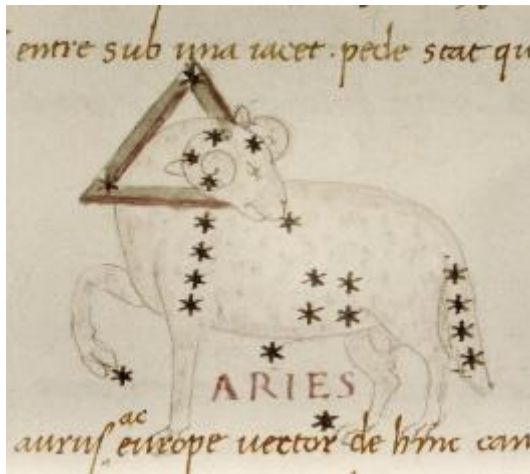 entre sub una iacet. pede stat qu
ARIES
ac
aurus europe vector de hinc can